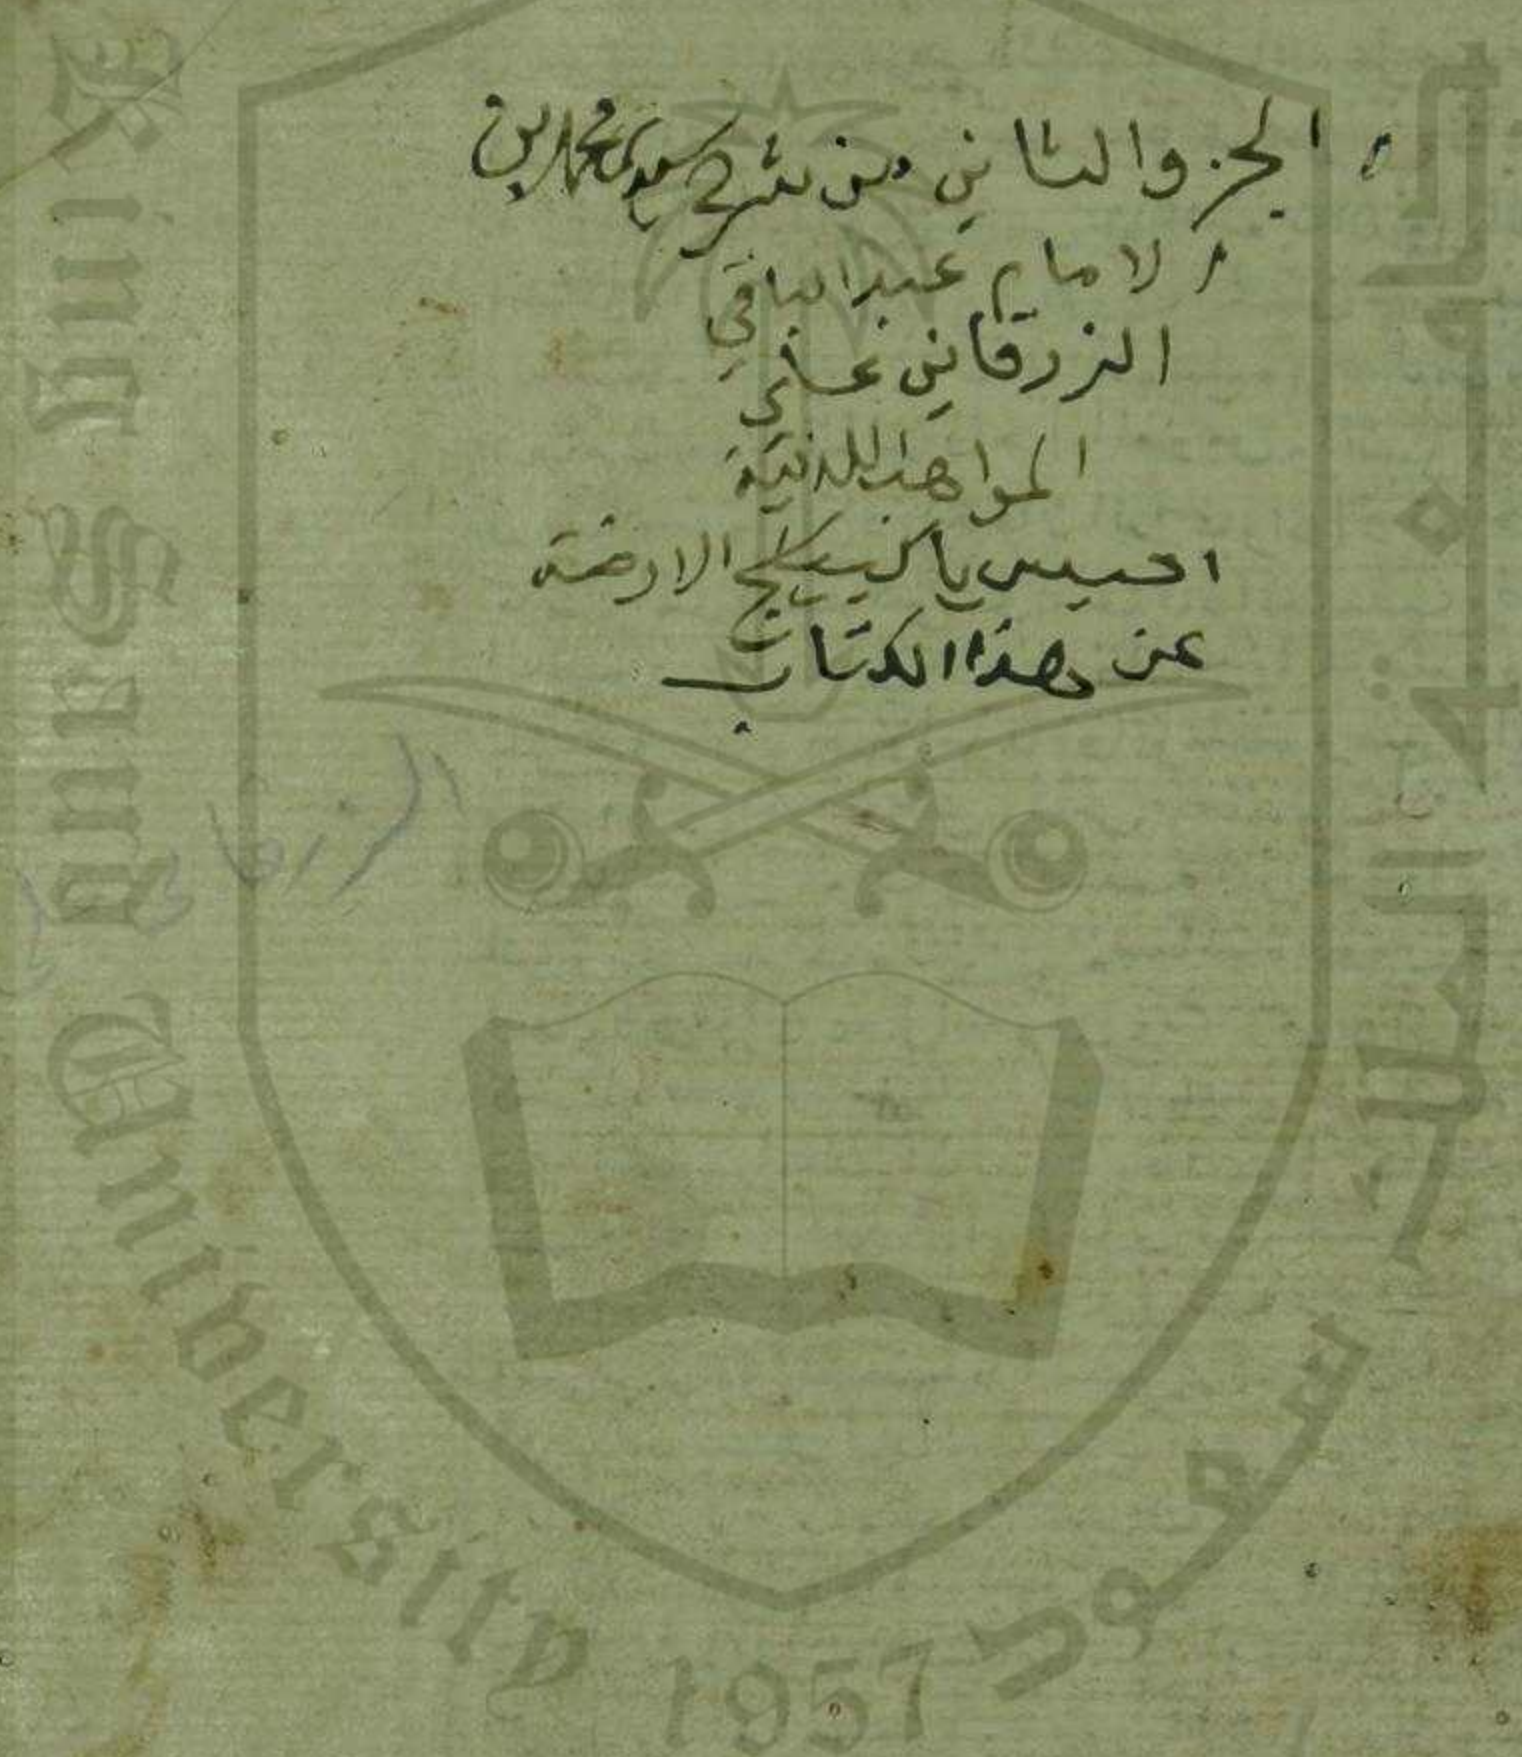 الجزو الثاني من شرح سيدي محمد بن
الامام عبد الباقي
الزرقاني على
المواهب اللدنية
احبس يا كبيكج الارضة
عن هذا الكتاب
King Saud University 1957
جامعة الملك سعود